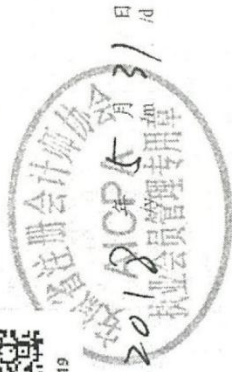 安徽省注册会计师协会
AICPA
执业会员管理专用章
2018年5月31日
/m
/d
19